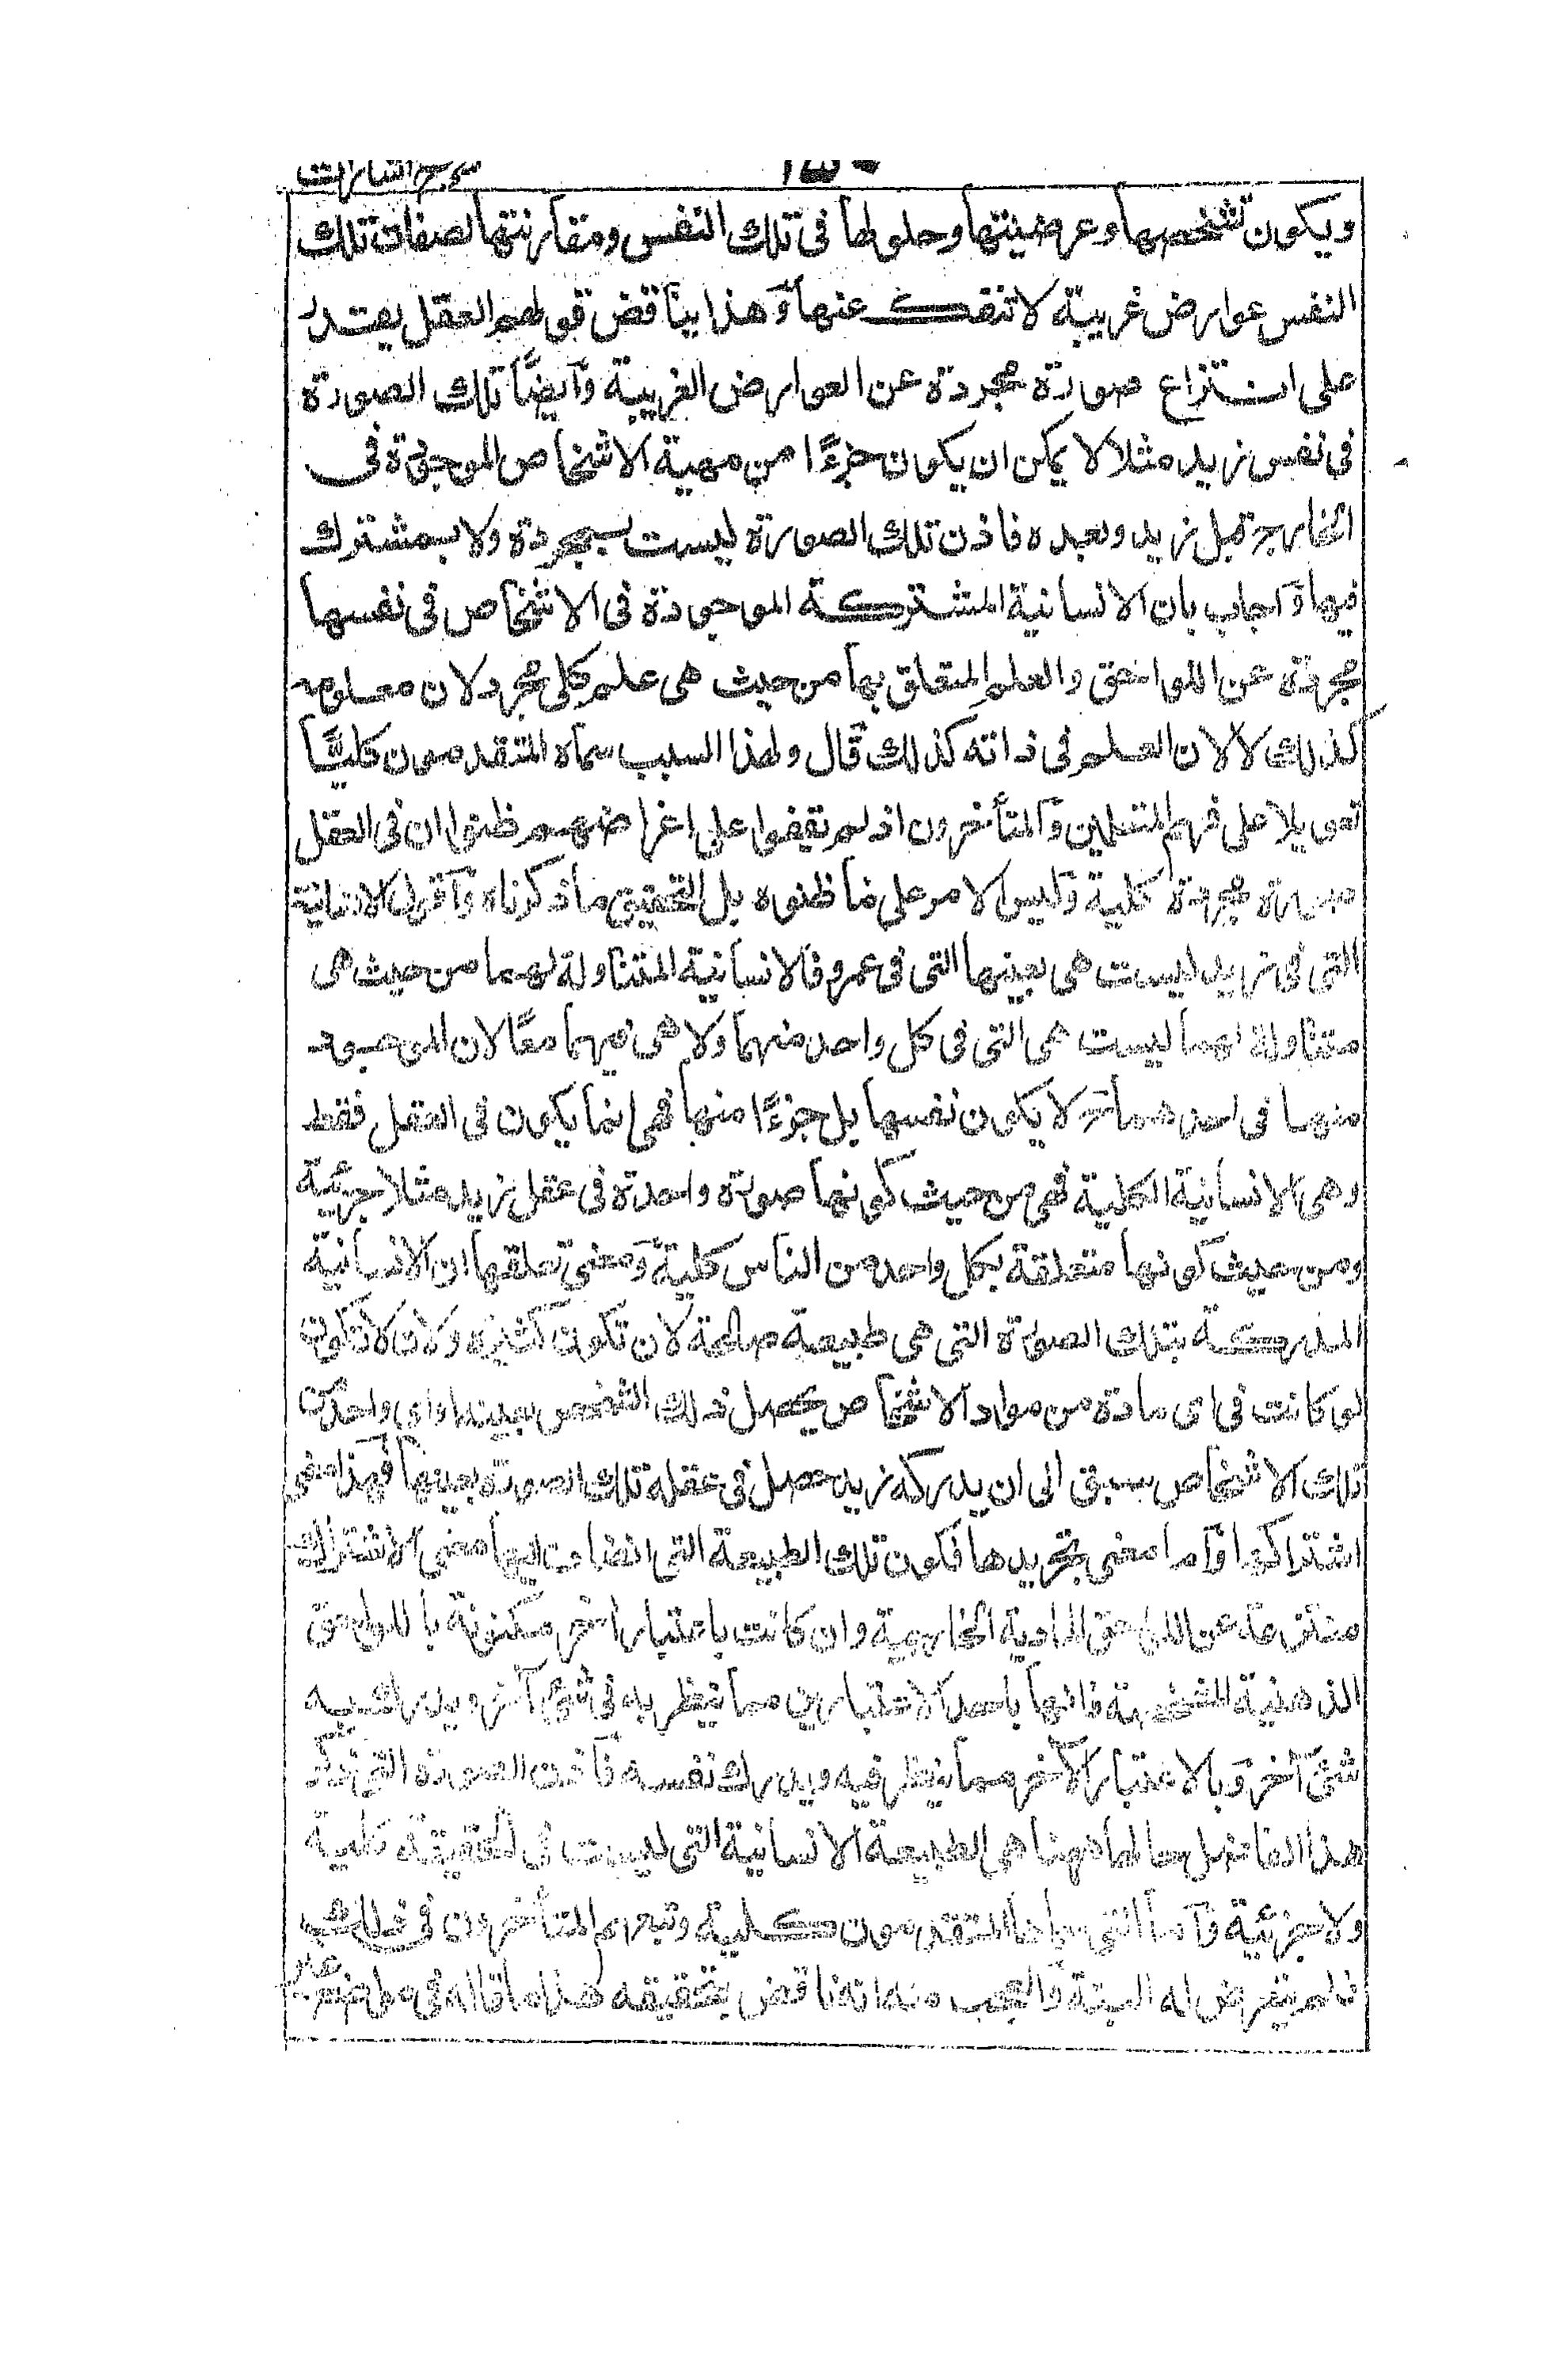 ويكون تشخصها وعرضيتها وحلولها فى تلك النفس ومقارنتها لصفات تلك
النفس عوارض غريبة لا تنفك عنها وهذا يناقض قولهم العقل يقتدر
على انتزاع صورة مجردة عن العوارض الغريبة وأيضًا تلك الصورة
فى نفس زيد مثلا لا يمكن ان يكون جزءًا من مهية الاشخاص الموجودة فى
الخارج قبل زيد وبعده فاذن تلك الصورة ليست بمجردة ولا بمشترك
فيها وأجاب بان الانسانية المشتركة الموجودة فى الاشخاص فى نفسها
مجردة عن اللواحق والعلم المتعلق بها من حيث هى علم كلى مجرد لان معلومه
كذلك لا لان العلم فى ذاته كذلك قال ولهذا السبب سماه المتقدمون كليًّا
تعويلا على فهم المتعلمين والمتأخرون اذ لم يقفوا على اغراضهم ظنوا ان فى العقل
صورة مجردة كلية وليس الامر على ما ظنوه بل التحقيق ما ذكرناه وأقول الانسانية
التى فى زيد ليست هى بعينها التى فى عمرو فالانسانية المتناولة لهما من حيث هى
متناولة لهما ليست هى التى فى كل واحد منهما ولا هى فيهما معًا لان الموجود
منها فى احدهما لا يكون نفسها بل جزءًا منها فهى انما يكون فى العقل فقط
وهى الانسانية الكلية فهى من حيث كونها صورة واحدة فى عقل زيد مثلا جزئية
ومن حيث كونها متعلقة بكل واحد من الناس كلية ومعنى تعلقها ان الانسانية
المدركة بتلك الصورة التى هى طبيعة صالحة لان تكون كثيرة ولان لا تكون
لو كانت فى اى مادة من مواد الاشخاص يحصل ذلك الشخص بعينه او اى واحد من
تلك الاشخاص سبق الى ان يدركه زيد حصل فى عقله تلك الصورة بعينها فهذا معنى
اشتراكها وأما معنى تجريدها فكون تلك الطبيعة التى انضاف اليها معنى الاشتراك
منتزعة عن اللواحق المادية الخارجية وان كانت باعتبار اخر مكنونة باللواحق
الذهنية المشخصة فانها باحد الاعتبارين مما ينظر به فى شئ آخر ويدرك به
شئ آخر وبالاعتبار الآخر مما ينظر فيه ويدرك نفسه فأذن الصورة التى ذكر
هذا الفاضل حالها ههنا هى الطبيعة الانسانية التى ليست فى الحقيقة كلية
ولا جزئية وأما التى سماها المتقدمون كلية وتبعهم المتأخرون فى ذلك
فلم يتعرض له البتة والعجب منه انه ناقض بتحقيقه هذا ما قاله فى